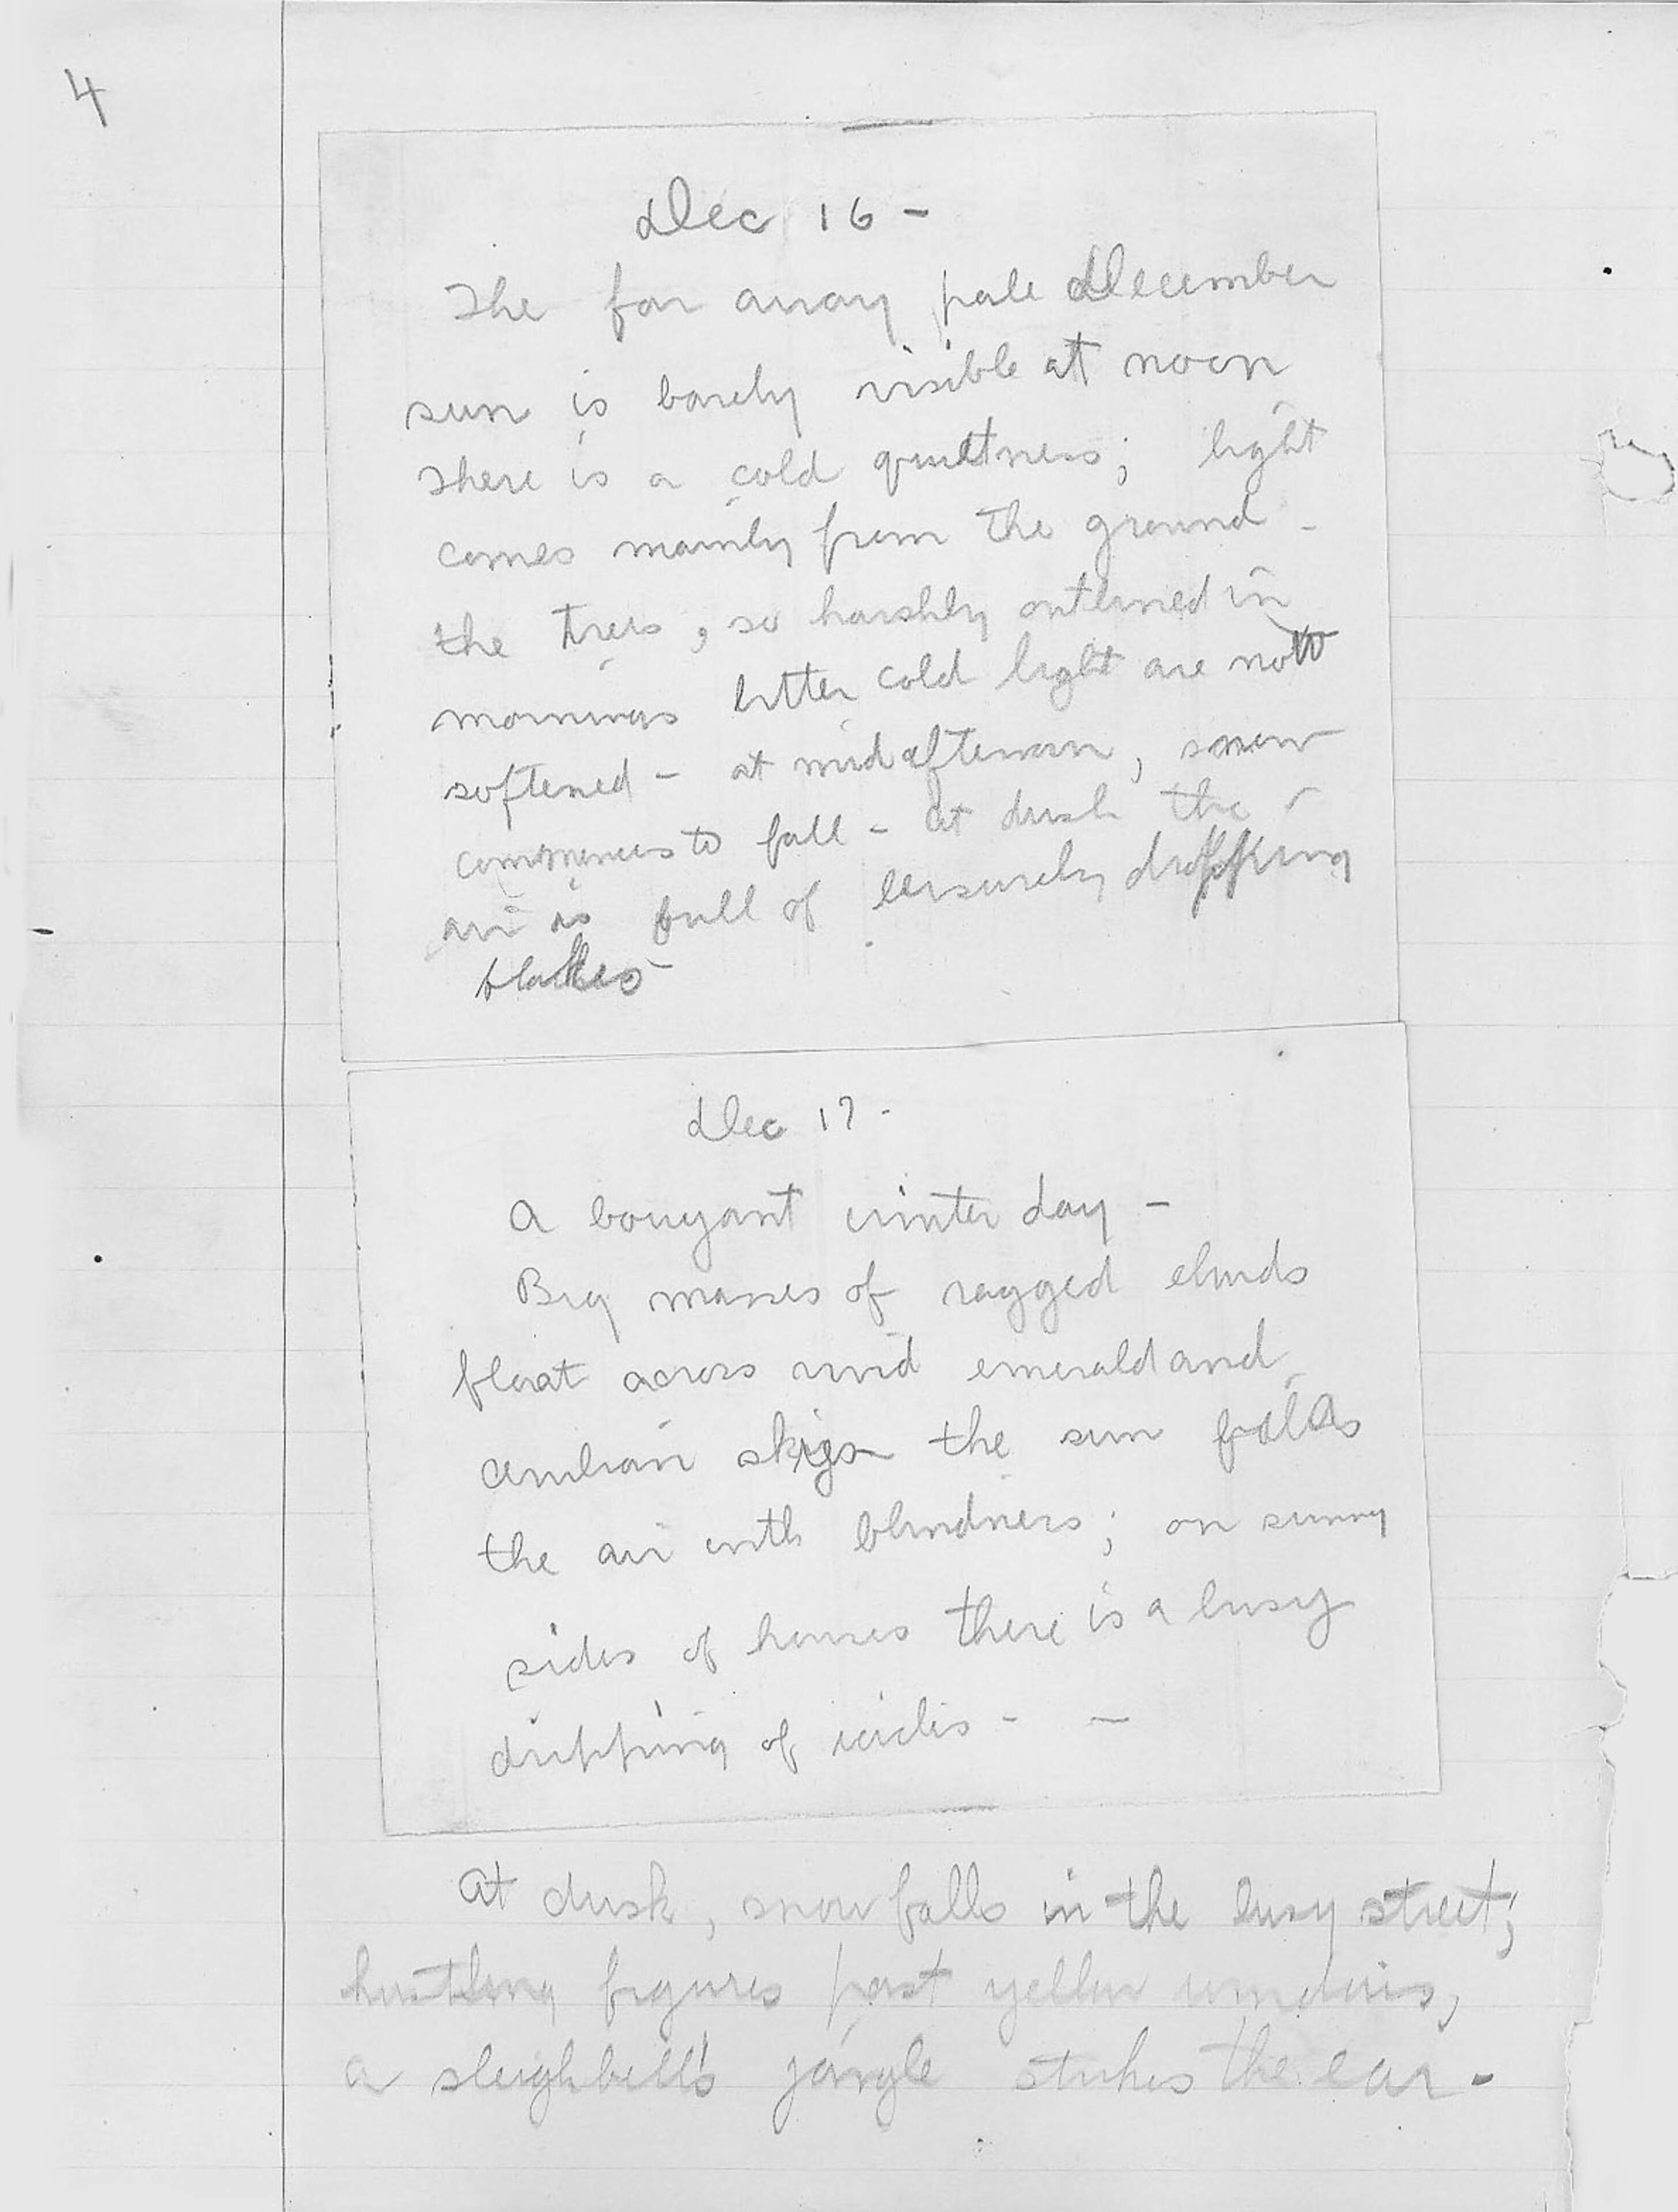 4
Dec 16 -
The far away pale December
sun is barely visible at noon
There is a cold quietness; light
comes mainly from the ground -
the trees, so harshly outlined in
mornings bitter cold light are now
softened - at midafternoon, snow
commences to fall - at dusk the
air is full of leisurely dropping
flakes -
Dec 17 -
A bouyant winter day -
Big masses of ragged clouds
float across vivid emerald and
cerulean skies the sun fills
the air with blindness; on sunny
sides of houses there is a busy
dripping of icicles - -
At dusk, snow falls in the busy street;
hustling figures past yellow windows,
a sleighbell's jangle strikes the ear -